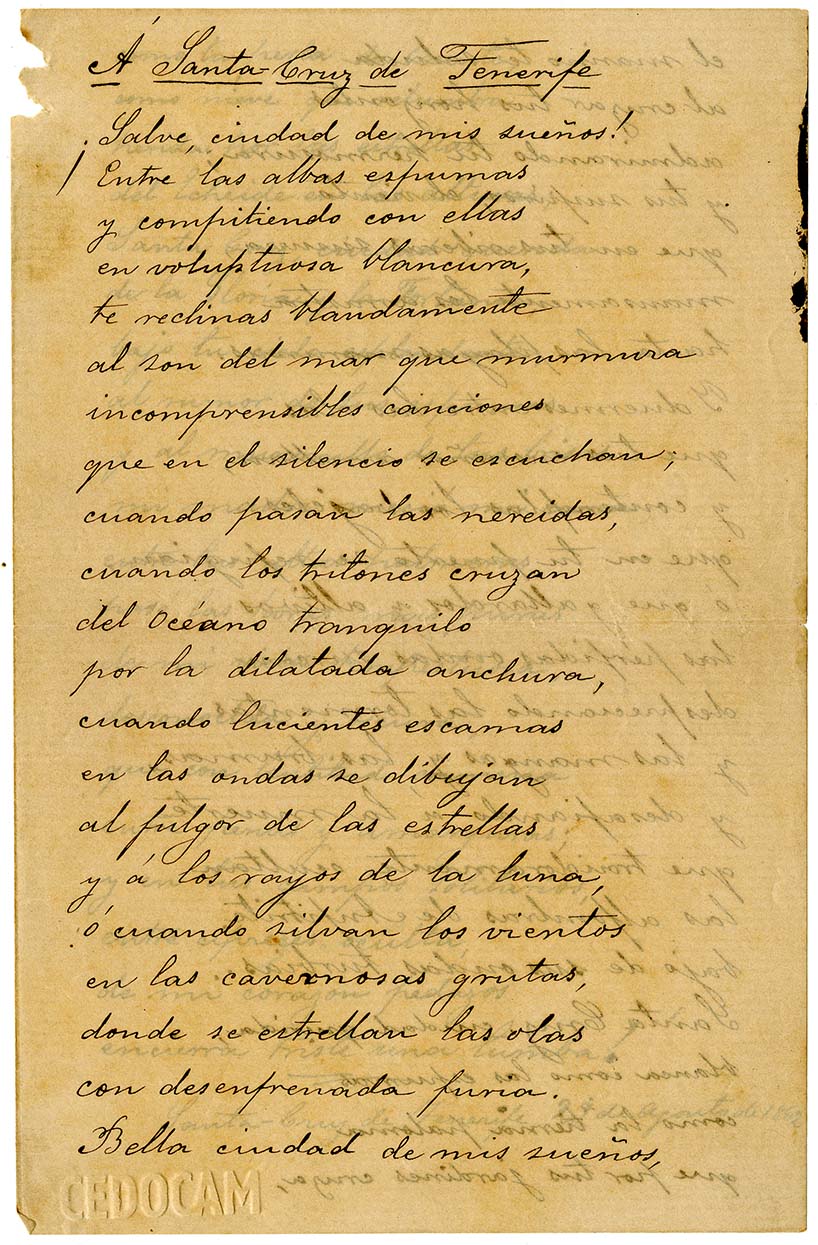 Á Santa-Cruz de Tenerife
¡Salve, ciudad de mis sueños!
Entre las albas espumas
y compitiendo con ellas
en voluptuosa blancura,
te reclinas blandamente
al son del mar que murmura
incomprensibles canciones
que en el silencio se escuchan;
cuando pasan las nereidas,
cuando los tritones cruzan
del Océano tranquilo
por la dilatada anchura,
cuando lucientes escamas
en las ondas se dibujan
al fulgor de las estrellas
y á los rayos de la luna,
ó cuando silvan los vientos
en las cavernosas grutas,
donde se estrellan las olas
con desenfrenada furia.
Bella ciudad de mis sueños,
CEDOCAM